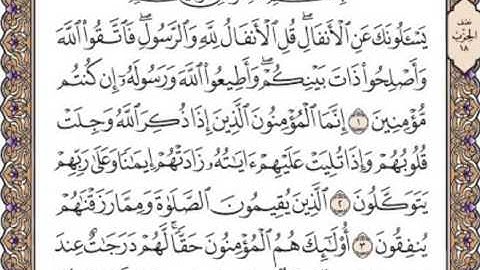 يَسْـَٔلُونَكَ عَنِ ٱلْأَنفَالِۖ قُلِ ٱلْأَنفَالُ لِلَّهِ وَٱلرَّسُولِۖ فَٱتَّقُوا۟ ٱللَّهَ
وَأَصْلِحُوا۟ ذَاتَ بَيْنِكُمْۖ وَأَطِيعُوا۟ ٱللَّهَ وَرَسُولَهُۥٓ إِن كُنتُم
مُّؤْمِنِينَ ١ إِنَّمَا ٱلْمُؤْمِنُونَ ٱلَّذِينَ إِذَا ذُكِرَ ٱللَّهُ وَجِلَتْ
قُلُوبُهُمْ وَإِذَا تُلِيَتْ عَلَيْهِمْ ءَايَـٰتُهُۥ زَادَتْهُمْ إِيمَـٰنًا وَعَلَىٰ رَبِّهِمْ
يَتَوَكَّلُونَ ٢ ٱلَّذِينَ يُقِيمُونَ ٱلصَّلَوٰةَ وَمِمَّا رَزَقْنَـٰهُمْ
يُنفِقُونَ ٣ أُو۟لَـٰٓئِكَ هُمُ ٱلْمُؤْمِنُونَ حَقًّاۚ لَّهُمْ دَرَجَـٰتٌ عِندَ
الحزب
١٨